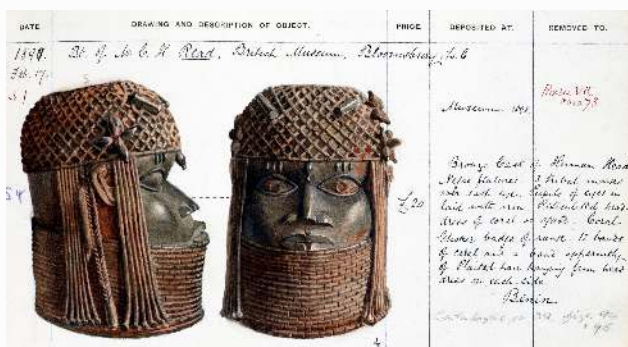 DATE DRAWING AND DESCRIPTION OF OBJECT. PRICE. DEPOSITED AT. REMOVED TO.
1898 Bt. of Mr C. H. Read, British Museum, Bloomsbury
Feb. 17.
Museum
£20
Bronze Cast of Human Head
3 tribal marks
over each eye. Pupils of eyes in-
laid with iron. Head-
dress of coral or agate. Coral
of same. 17 bands
of coral and a band apparently
of Plaited hair hanging from head
dress on each side
Benin